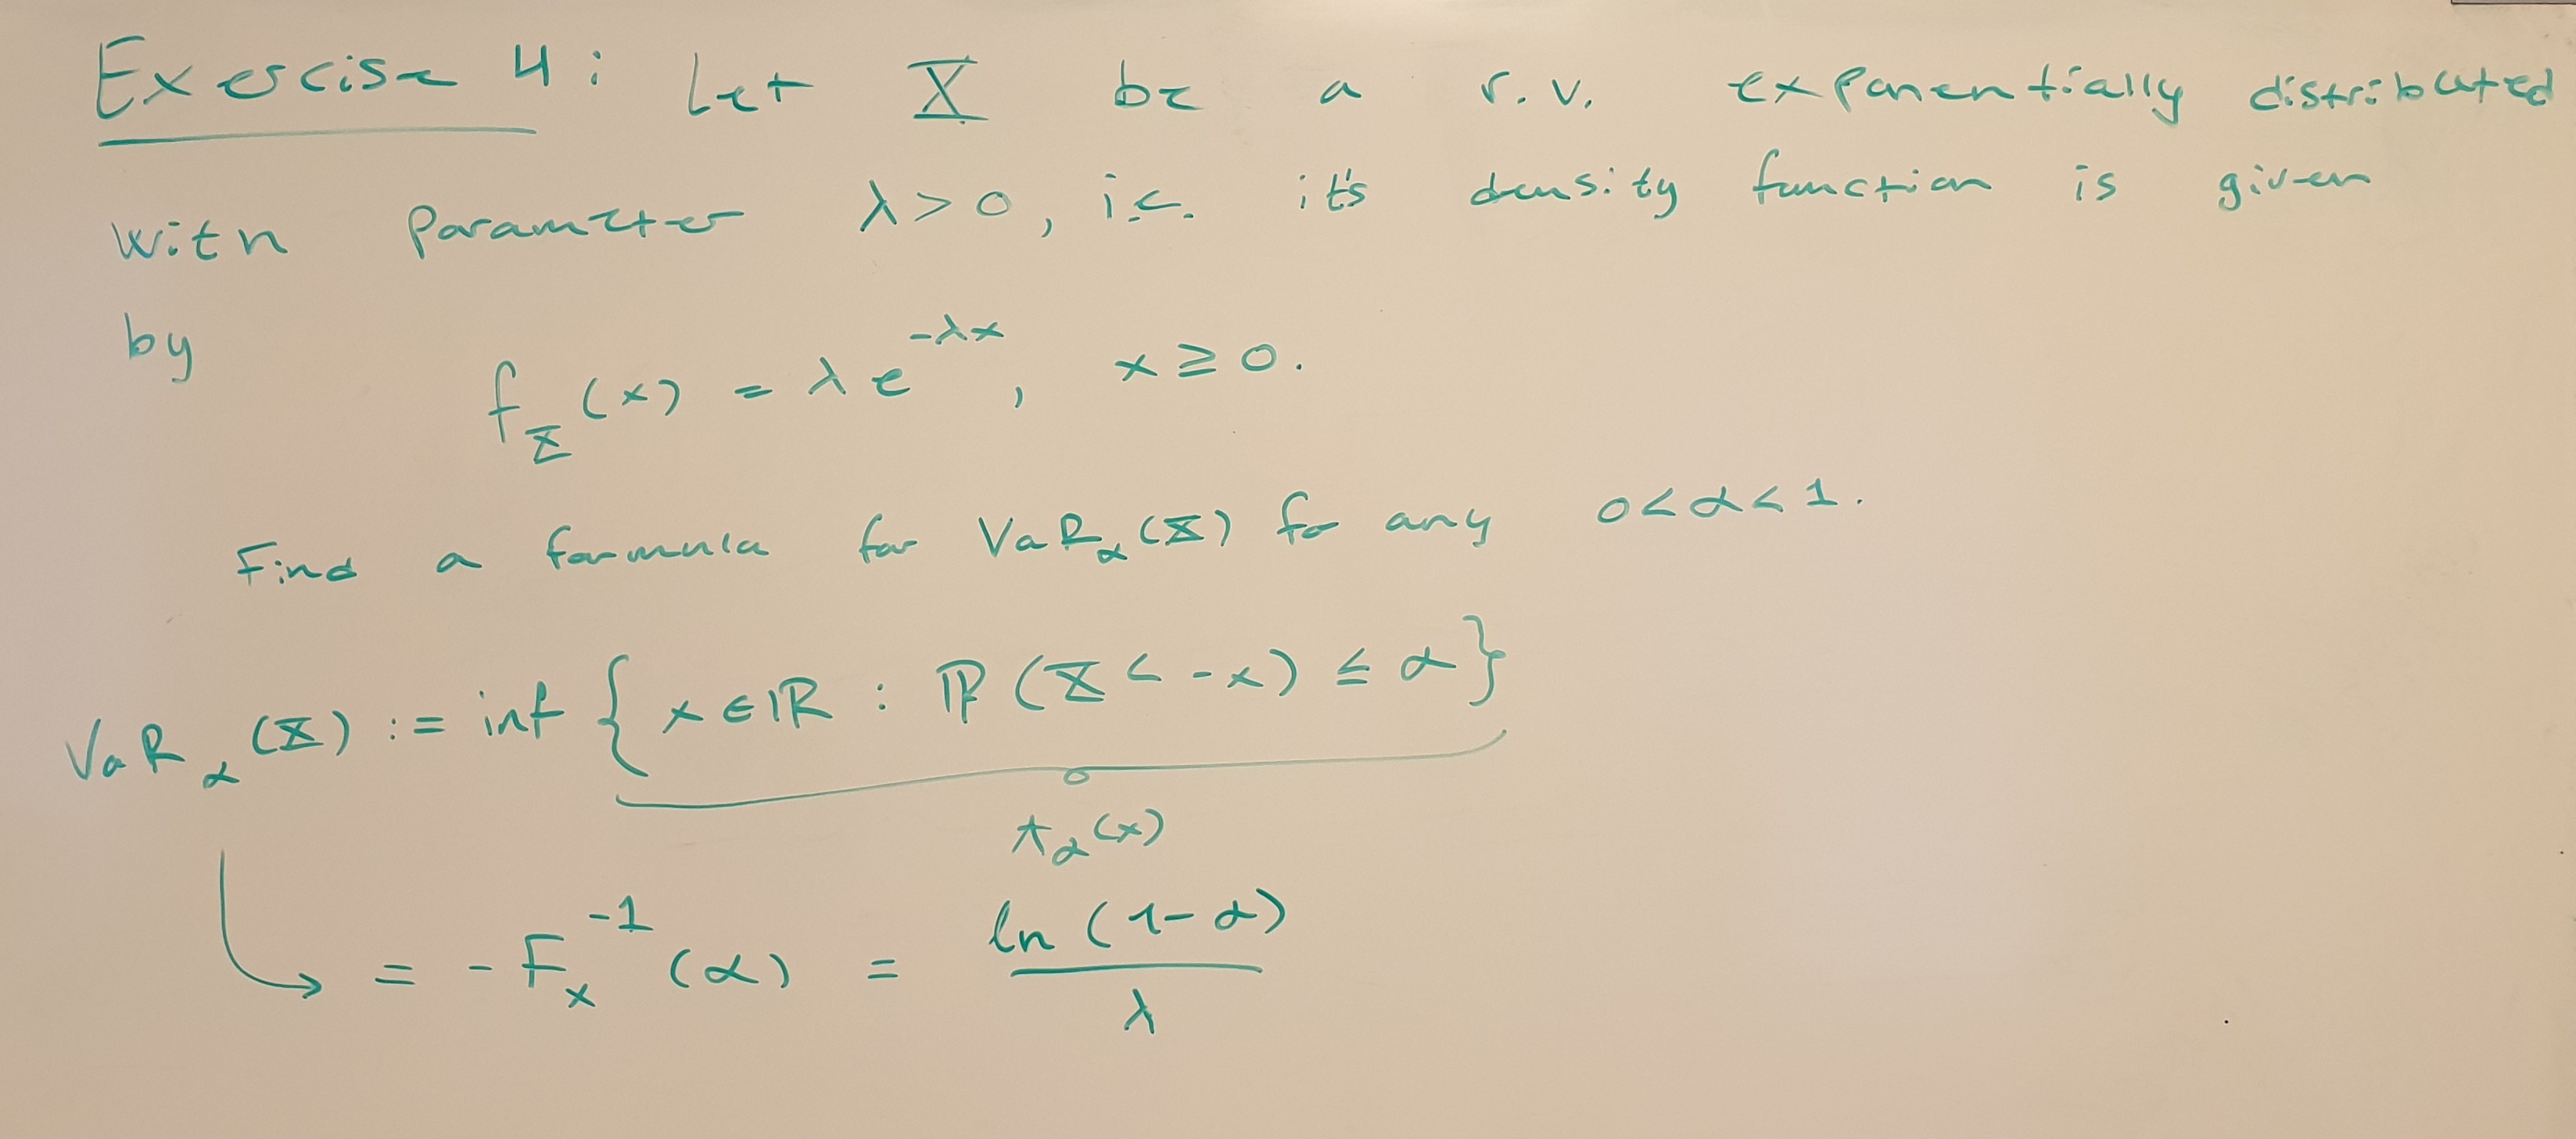 Exercise 4: Let X be a r.v. exponentially distributed
with parameter λ>0, i.e. it's density function is given
by
f_X(x) = λ e^{-λx}, x ≥ 0.
Find a formula for VaR_α(X) for any 0<α<1.
VaR_α(X) := inf { x ∈ ℝ : ℙ(X < -x) ≤ α }
A_α(x)
= -F_x^{-1}(α) = ln(1-α)/λ